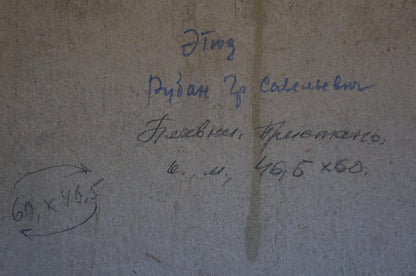 Этюд
Рубан Гр. Савельевич
Плавни. Пристань.
к., м., 46,5 х 60.
60, х 46,5